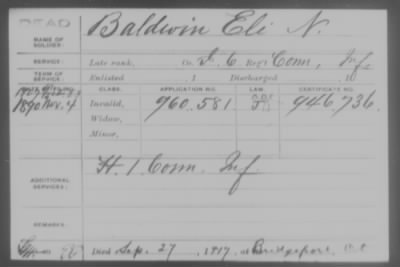 DEAD
Baldwin Eli N.
NAME OF SOLDIER:
SERVICE: Late rank, Co. I. 6 Reg't Conn. Inf.
TERM OF SERVICE: Enlisted 1 Discharged 1
CLASS. APPLICATION NO. LAW. CERTIFICATE NO.
1890 Nov. 4 Invalid, 960.581 946.736.
Widow,
Minor,
H. 1. Conn. Inf.
ADDITIONAL SERVICES:
REMARKS:
Died Sep. 27, 1917, at Bridgeport, Ct